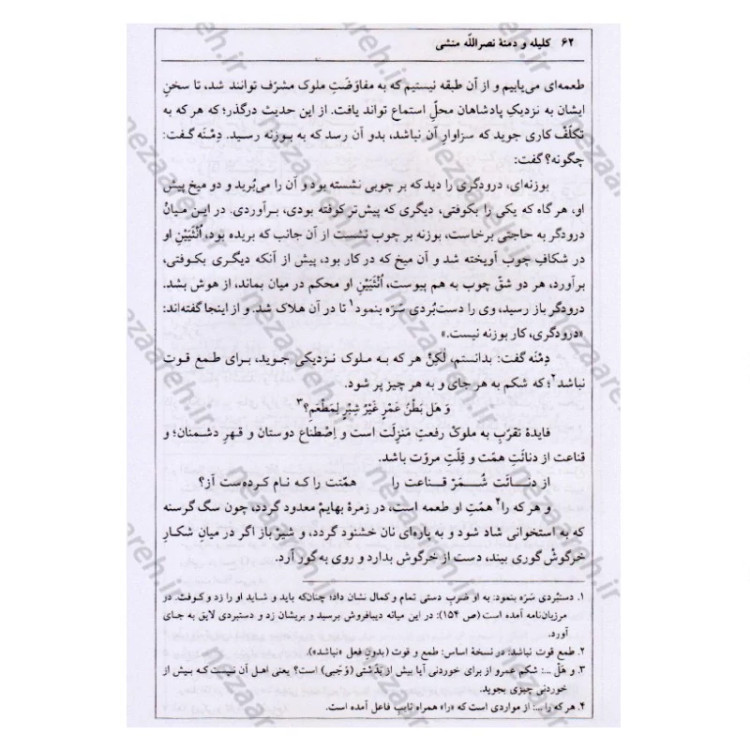 ۶۲ کلیله و دمنهٔ نصراللّه منشی
طعمه‌ای می‌یابیم و از آن طبقه نیستیم که به مفاوَضَتِ ملوک مشرّف توانند شد، تا سخنِ
ایشان به نزدیکِ پادشاهان محلِّ استماع تواند یافت. از این حدیث درگذر؛ که هر که به
تکلّف کاری جوید که سزاوارِ آن نباشد، بدو آن رسد که به بوزنه رسید. دِمْنَه گفت:
چگونه؟ گفت:
بوزنه‌ای، درودگری را دید که بر چوبی نشسته بود و آن را می‌بُرید و دو میخ پیش
او، هر گاه که یکی را بکوفتی، دیگری که پیش‌تر کوفته بودی، برآوردی. در این میان
درودگر به حاجتی برخاست، بوزنه بر چوب نشست از آن جانب که بریده بود، اُنْثَیَیْنِ او
در شکافِ چوب آویخته شد و آن میخ که در کار بود، پیش از آنکه دیگری بکوفتی،
برآورد، هر دو شقِّ چوب به هم پیوست، اُنْثَیَیْنِ او محکم در میان بماند، از هوش بشد.
درودگر باز رسید، وی را دست‌بُردی سَرَه بنمود۱ تا در آن هلاک شد. و از اینجا گفته‌اند:
«درودگری، کار بوزنه نیست.»
دِمْنَه گفت: بدانستم، لٰکِنْ هر که به ملوک نزدیکی جوید، برای طمع قوت
نباشد۲؛ که شکم به هر جای و به هر چیز پر شود.
وَ هَل بَطْنُ عَمْرٍ غَیْرُ شِبْرٍ لِمَطْعَمِ؟۳
فایدهٔ تقرّب به ملوک رفعتِ مَنزِلَت است و اِصْطِناعِ دوستان و قهرِ دشمنان؛ و
قناعت از دنائتِ همّت و قِلّتِ مروّت باشد.
از دنـائت شُـمَرْ قـناعت را همّتت را کـه نام کرده‌ست آز؟
و هر که را۴ همّتِ او طعمه است، در زمرهٔ بهایم معدود گردد، چون سگِ گرسنه
که به استخوانی شاد شود و به پاره‌ای نان خشنود گردد، و شیر باز اگر در میانِ شکارِ
خرگوش گوری بیند، دست از خرگوش بدارد و روی به گور آرد.
۱. دستبُردی سَرَه بنمود: به او ضربِ دستی تمام و کمال نشان داد؛ چنان‌که باید و شاید او را زد و کوفت. در
مرزبان‌نامه آمده است (ص ۱۵۴): در این میانه دیبافروش برسید و بریشان زد و دستبردی لایق به جای
آورد.
۲. طمع قوت نباشد: در نسخهٔ اساس: طمع و قوت (بدونِ فعل «نباشد»).
۳. و هَلْ ...: شکم عمرو از برای خوردنی آیا بیش از بِدَستی (وَجَبی) است؟ یعنی اهل آن نیست که بیش از
خوردنی چیزی بجوید.
۴. هر که را ...: از مواردی است که «را» همراه نایب فاعل آمده است.
nezaareh.ir